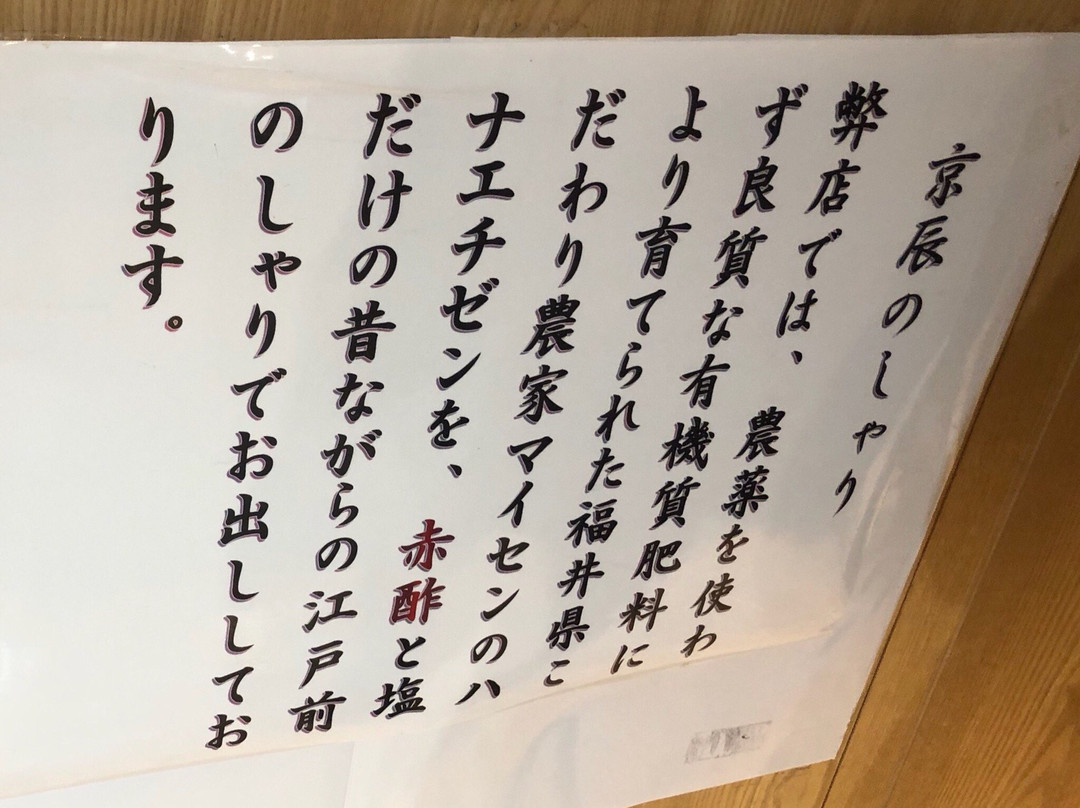 京辰のしゃり
弊店では、農薬を使わ
ず良質な有機質肥料に
より育てられた福井県こ
だわり農家マイセンのハ
ナエチゼンを、赤酢と塩
だけの昔ながらの江戸前
のしゃりでお出ししてお
ります。